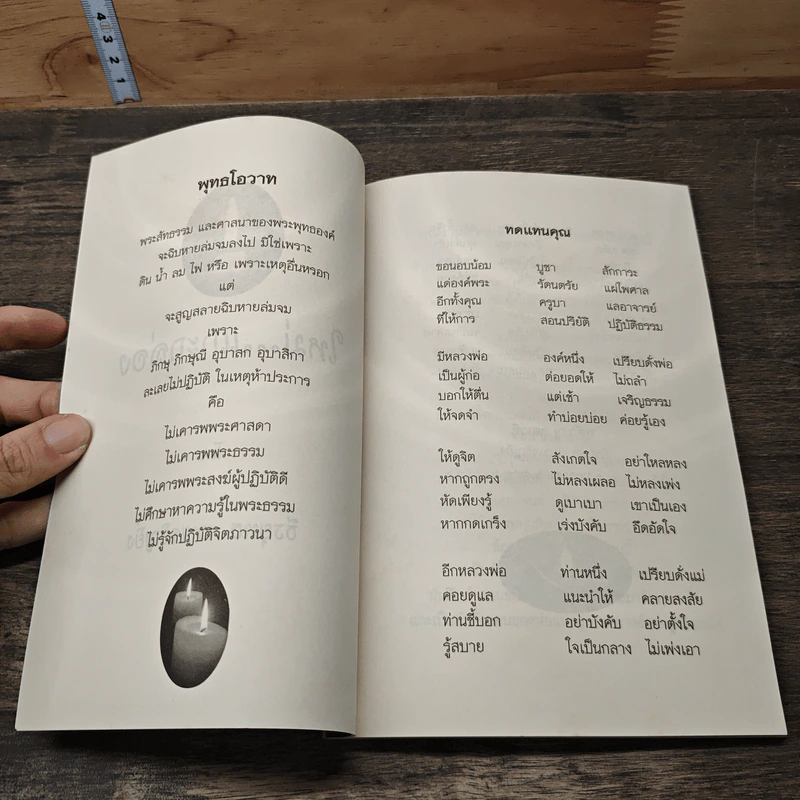 4
3
2
1
พุทธโอวาท
พระสัทธรรม และศาสนาของพระพุทธองค์
จะฉิบหายล่มจมลงไป มิใช่เพราะ
ดิน น้ำ ลม ไฟ หรือ เพราะเหตุอื่นหรอก
แต่
จะสูญสลายฉิบหายล่มจม
เพราะ
ภิกษุ ภิกษุณี อุบาสก อุบาสิกา
ละเลยไม่ปฏิบัติ ในเหตุห้าประการ
คือ
ไม่เคารพพระศาสดา
ไม่เคารพพระธรรม
ไม่เคารพพระสงฆ์ผู้ปฏิบัติดี
ไม่ศึกษาหาความรู้ในพระธรรม
ไม่รู้จักปฏิบัติจิตภาวนา
ทดแทนคุณ
ขอนอบน้อม บูชา สักการะ
แด่องค์พระ รัตนตรัย แผ่ไพศาล
อีกทั้งคุณ ครูบา แลอาจารย์
ที่ให้การ สอนปริยัติ ปฏิบัติธรรม
มีหลวงพ่อ องค์หนึ่ง เปรียบดั่งพ่อ
เป็นผู้ก่อ ต่อยอดให้ ไม่ถลำ
บอกให้ตื่น แต่เช้า เจริญธรรม
ให้จดจำ ทำบ่อยบ่อย ค่อยรู้เอง
ให้ดูจิต สังเกตใจ อย่าไหลหลง
หากถูกตรง ไม่หลงเผลอ ไม่หลงเพ่ง
หัดเพียงรู้ ดูเบาเบา เขาเป็นเอง
หากกดเกร็ง เร่งบังคับ อึดอัดใจ
อีกหลวงพ่อ ท่านหนึ่ง เปรียบดั่งแม่
คอยดูแล แนะนำให้ คลายสงสัย
ท่านชี้บอก อย่าบังคับ อย่าตั้งใจ
รู้สบาย ใจเป็นกลาง ไม่เพ่งเอา